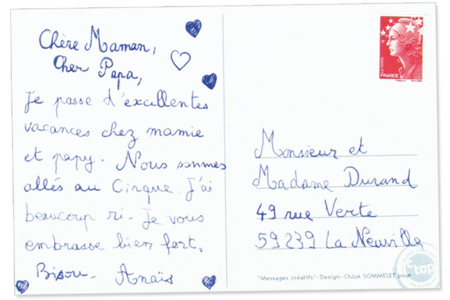 Chère Maman,
Cher Papa,
Je passe d'excellentes
vacances chez mamie
et papy. Nous sommes
allés au Cirque. J'ai
beaucoup ri. Je vous
embrasse bien fort.
Bisou - Anaïs
FRANCE
Monsieur et
Madame Durand
49 rue Verte
59239 La Neuville
"Messages créatifs" - Design : Chloé SOMMELET pour
top